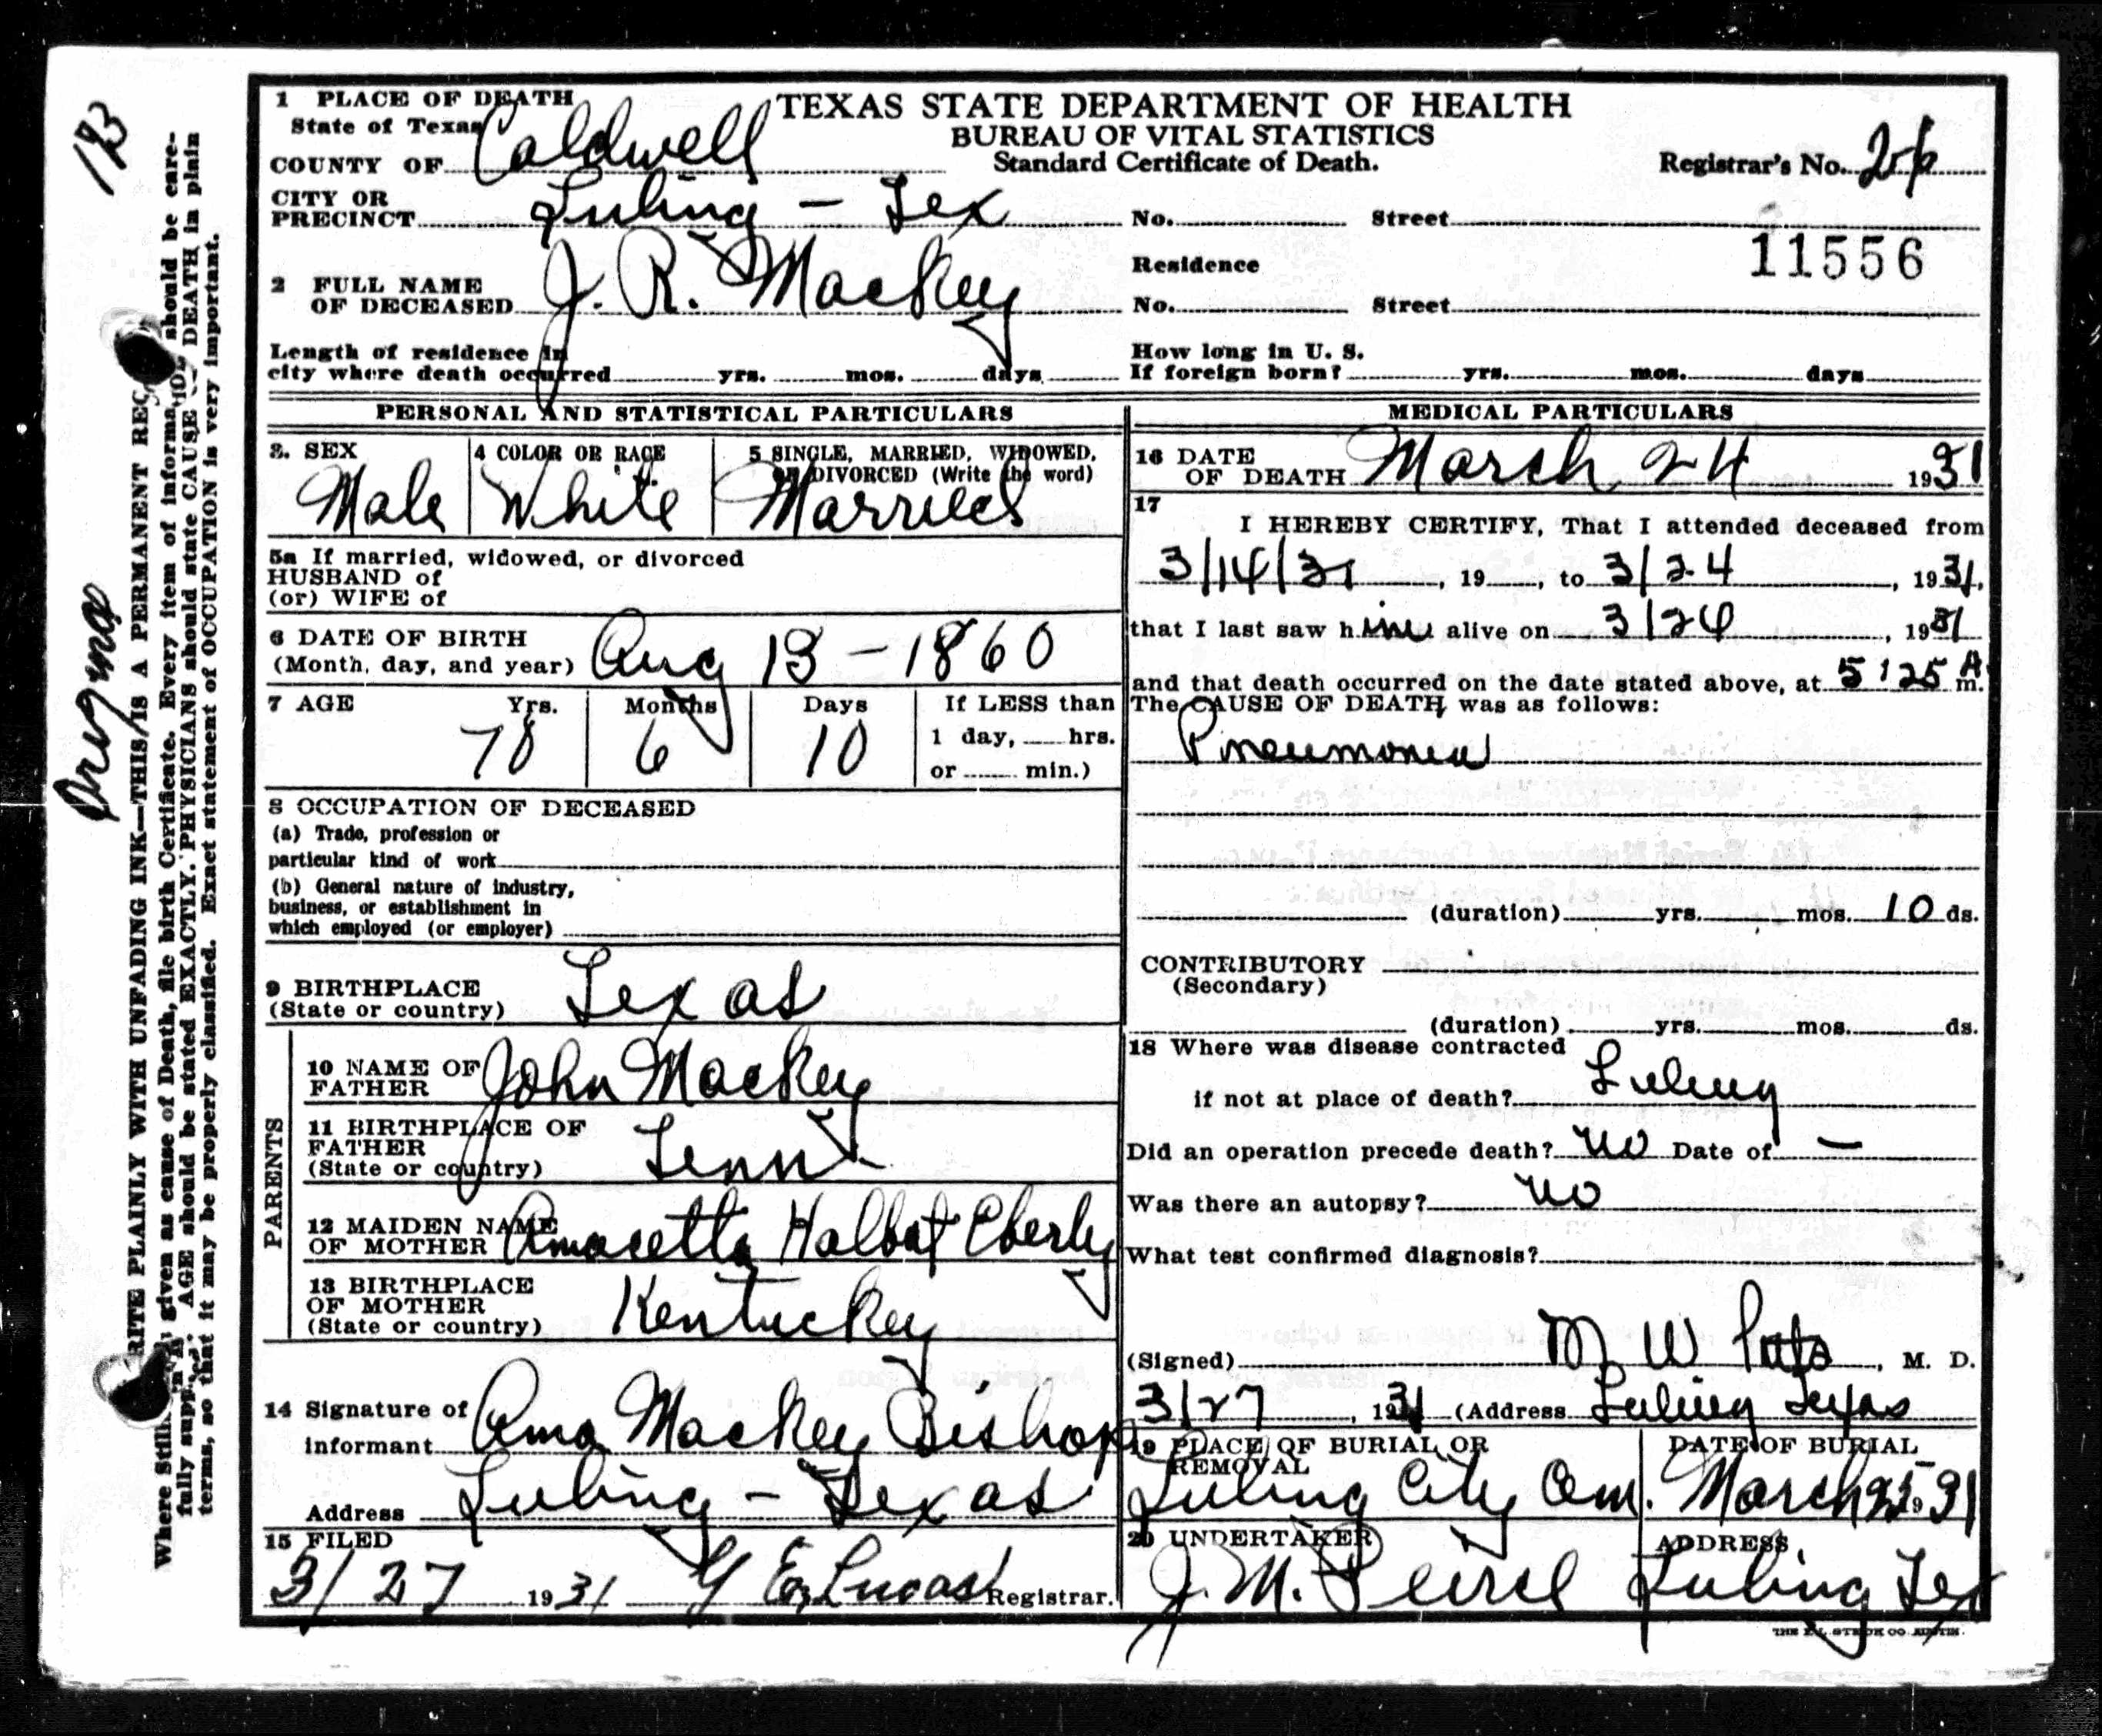 1 PLACE OF DEATH
State of Texas
COUNTY OF Caldwell
CITY OR
PRECINCT Luling - Tex
TEXAS STATE DEPARTMENT OF HEALTH
BUREAU OF VITAL STATISTICS
Standard Certificate of Death.
Registrar's No. 26
No. Street
Residence
11556
2 FULL NAME
OF DECEASED J. R. Mackey
No. Street
Length of residence in
city where death occurred yrs. mos. days
How long in U. S.
If foreign born? yrs. mos. days
PERSONAL AND STATISTICAL PARTICULARS
3. SEX Male
4 COLOR OR RACE White
5 SINGLE, MARRIED, WIDOWED,
OR DIVORCED (Write the word)
Married
5a If married, widowed, or divorced
HUSBAND of
(or) WIFE of
6 DATE OF BIRTH
(Month, day, and year) Aug 13 - 1860
7 AGE Yrs. Months Days If LESS than
1 day, hrs.
or min.)
70 6 10
8 OCCUPATION OF DECEASED
(a) Trade, profession or
particular kind of work
(b) General nature of industry,
business, or establishment in
which employed (or employer)
9 BIRTHPLACE
(State or country) Texas
PARENTS
10 NAME OF
FATHER John Mackey
11 BIRTHPLACE OF
FATHER
(State or country) Tenn
12 MAIDEN NAME
OF MOTHER Eberly
13 BIRTHPLACE
OF MOTHER
(State or country) Kentuckey
14 Signature of
informant Ama Mackey Bishop
Address Luling - Texas
15 FILED
3/27 1931 G E Lucas Registrar.
MEDICAL PARTICULARS
16 DATE
OF DEATH March 24 1931
17
I HEREBY CERTIFY, That I attended deceased from
3/14/31, 19, to 3/24, 1931,
that I last saw him alive on 3/24, 1931
and that death occurred on the date stated above, at 5:25 A m.
The CAUSE OF DEATH was as follows:
Pneumonia
(duration) yrs. mos. 10 ds.
CONTRIBUTORY
(Secondary)
(duration) yrs. mos. ds.
18 Where was disease contracted
if not at place of death? Luling
Did an operation precede death? no Date of -
Was there an autopsy? no
What test confirmed diagnosis?
(Signed) M W Pitts, M. D.
3/27, 1931 (Address Luling Texas
19 PLACE OF BURIAL OR
REMOVAL
Luling City Cem.
DATE OF BURIAL
March 25 1931
20 UNDERTAKER
J. M. Peirce
ADDRESS
Luling Tex
THE E. L. STECK CO. AUSTIN.
193
WRITE PLAINLY WITH UNFADING INK—THIS IS A PERMANENT REC
Where Still given as cause of Death, file birth Certificate. Every item of informa should be care-
fully supplied. AGE should be stated EXACTLY. PHYSICIANS should state CAUSE DEATH in plain
terms, so that it may be properly classified. Exact statement of OCCUPATION is very important.